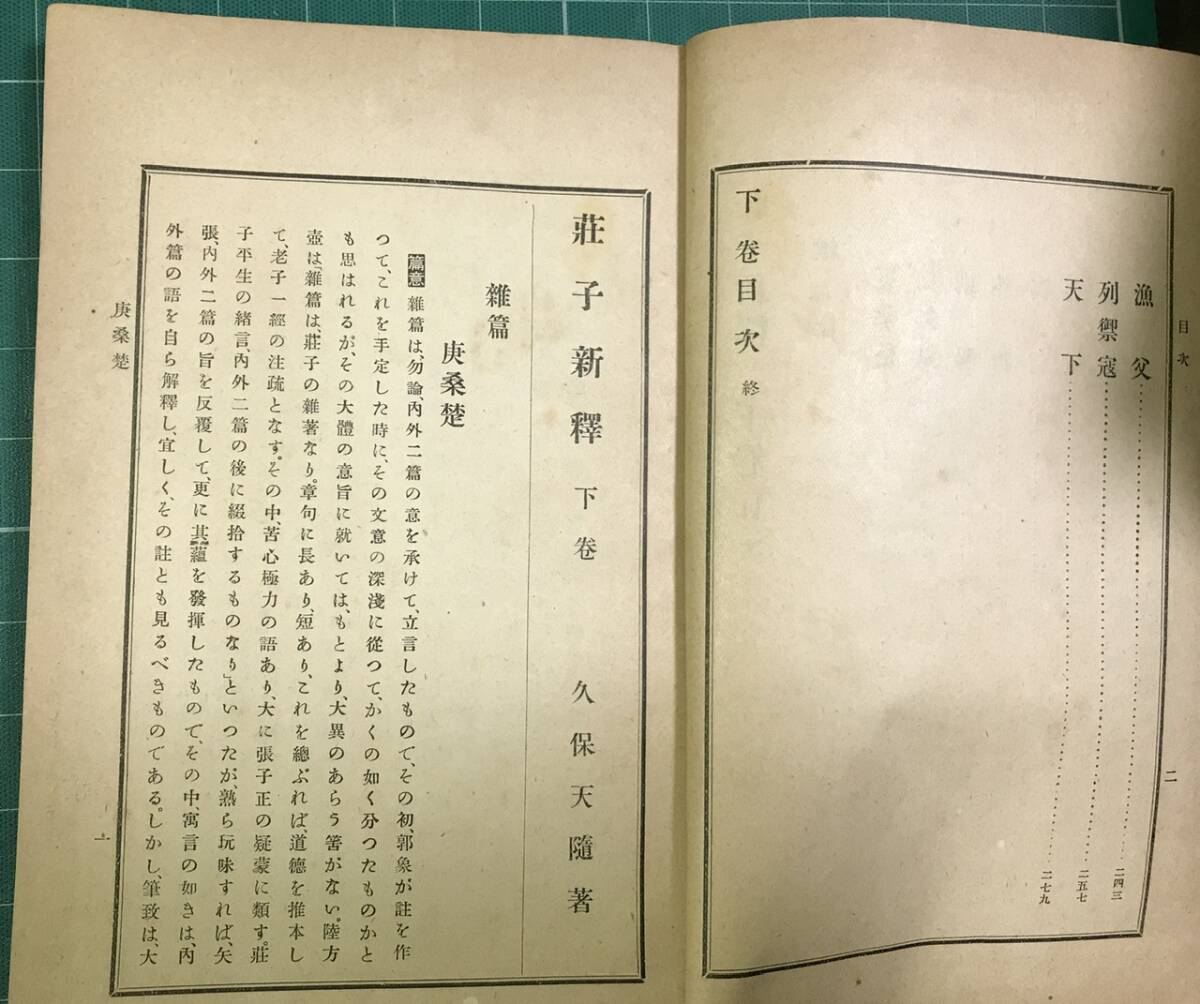 目次
漁父……二四三
列禦寇……二五七
天下……二七九
下卷目次 終
二
莊子新釋 下卷 久保天隨著
雜篇
庚桑楚
篇意 雜篇は、勿論、內外二篇の意を承けて、立言したもので、その初、郭象が註を作
つて、これを手定した時に、その文意の深淺に從つて、かくの如く分つたものかと
も思はれるが、その大體の意旨に就いては、もとより、大異のあらう筈がない。陸方
壺は「雜篇は、莊子の雜著なり。章句に長あり、短あり、これを總ぶれば、道德を推本し
て、老子一經の注疏となす。その中、苦心極力の語あり、大に張子正の疑蒙に類す。莊
子平生の緖言、內外二篇の後に綴拾するものなり」といつたが、熟ら玩味すれば、矢
張、內外二篇の旨を反覆して、更に其蘊を發揮したもので、その中、寓言の如きは、內
外篇の語を自ら解釋し、宜しく、その註とも見るべきものである。しかし、筆致は、大
庚桑楚
一